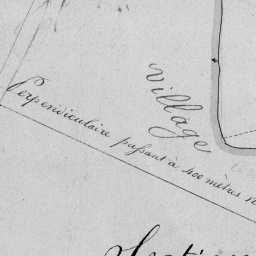 village
Perpendiculaire passant à 400 mètres
Section